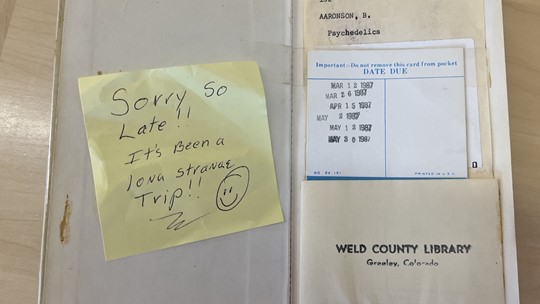 Sorry So
Late!!
It's Been a
long strange
Trip!!
AARONSON, B.
Psychedelics
Important—Do not remove this card from pocket
DATE DUE
MAR 12 1987
MAR 26 1987
APR 15 1987
MAY 2 1987
MAY 13 1987
MAY 30 1987
PRINTED IN U.S.A.
WELD COUNTY LIBRARY
Greeley, Colorado